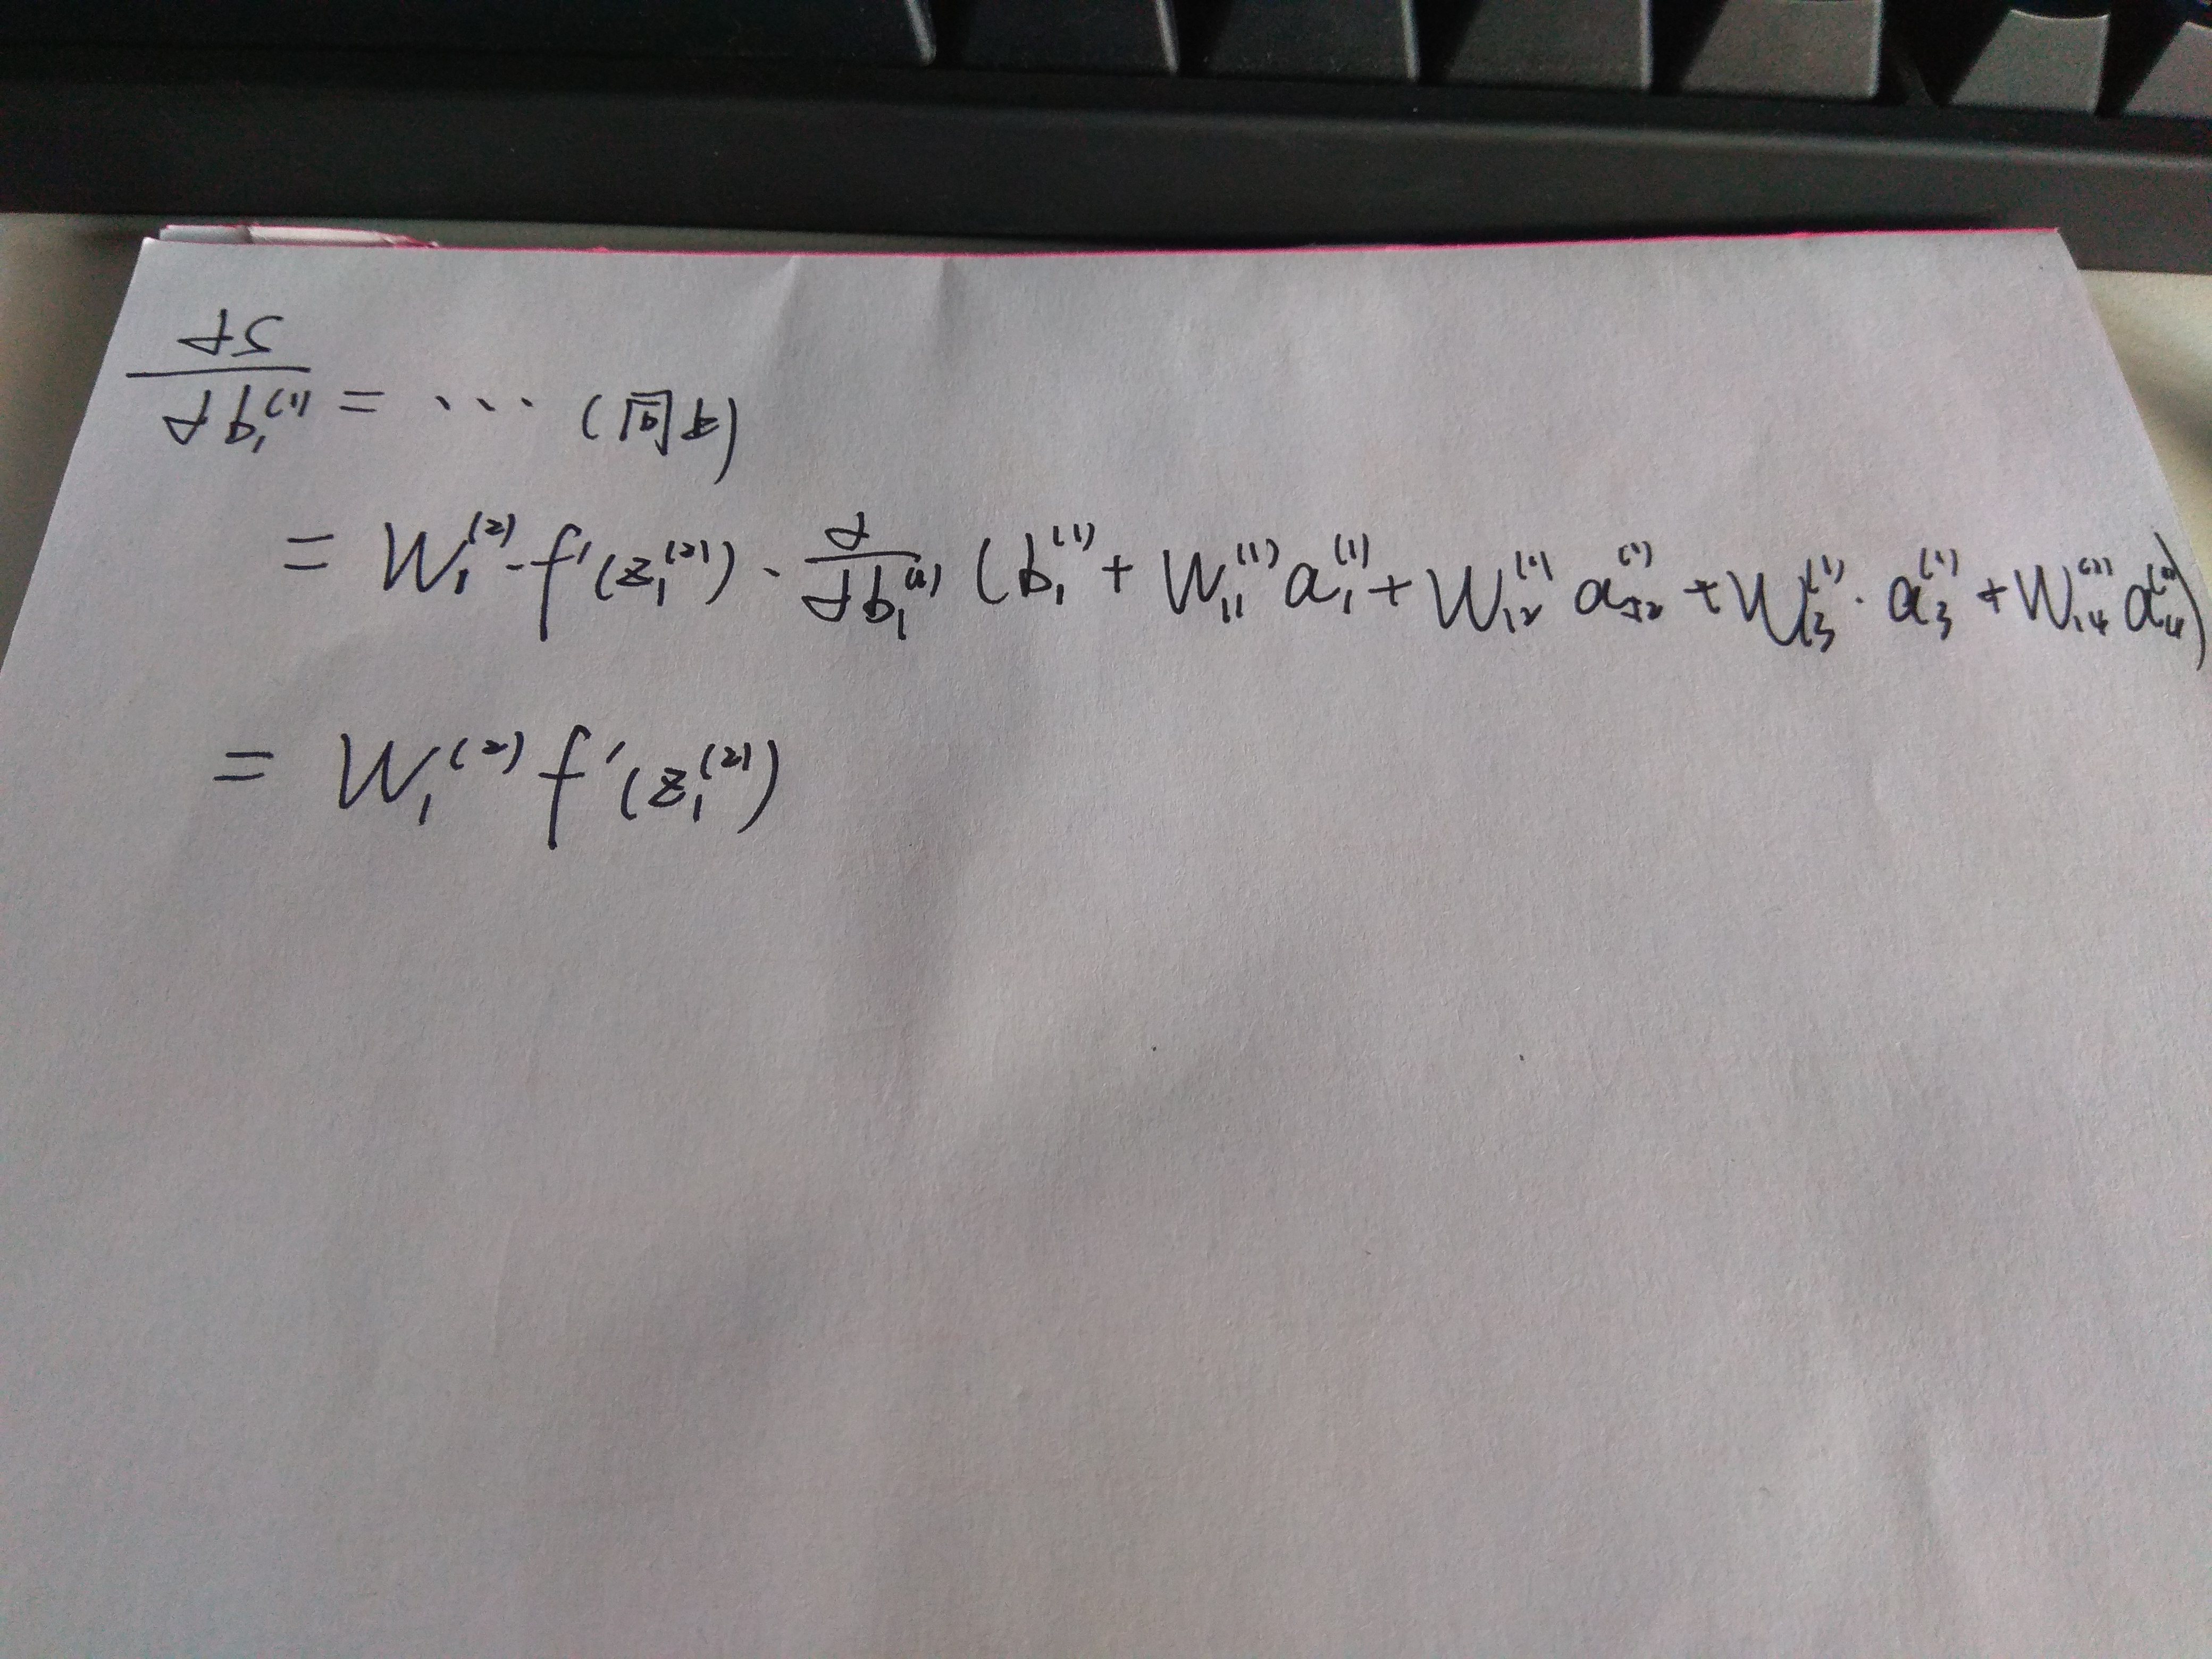 ∂S / ∂b₁⁽¹⁾ = ... (同上)
= W₁⁽²⁾ · f'(z₁⁽²⁾) · ∂ / ∂b₁⁽¹⁾ (b₁⁽¹⁾ + W₁₁⁽¹⁾ a₁⁽¹⁾ + W₁₂⁽¹⁾ a₂⁽¹⁾ + W₁₃⁽¹⁾ · a₃⁽¹⁾ + W₁₄⁽¹⁾ a₄⁽¹⁾)
= W₁⁽²⁾ f'(z₁⁽²⁾)